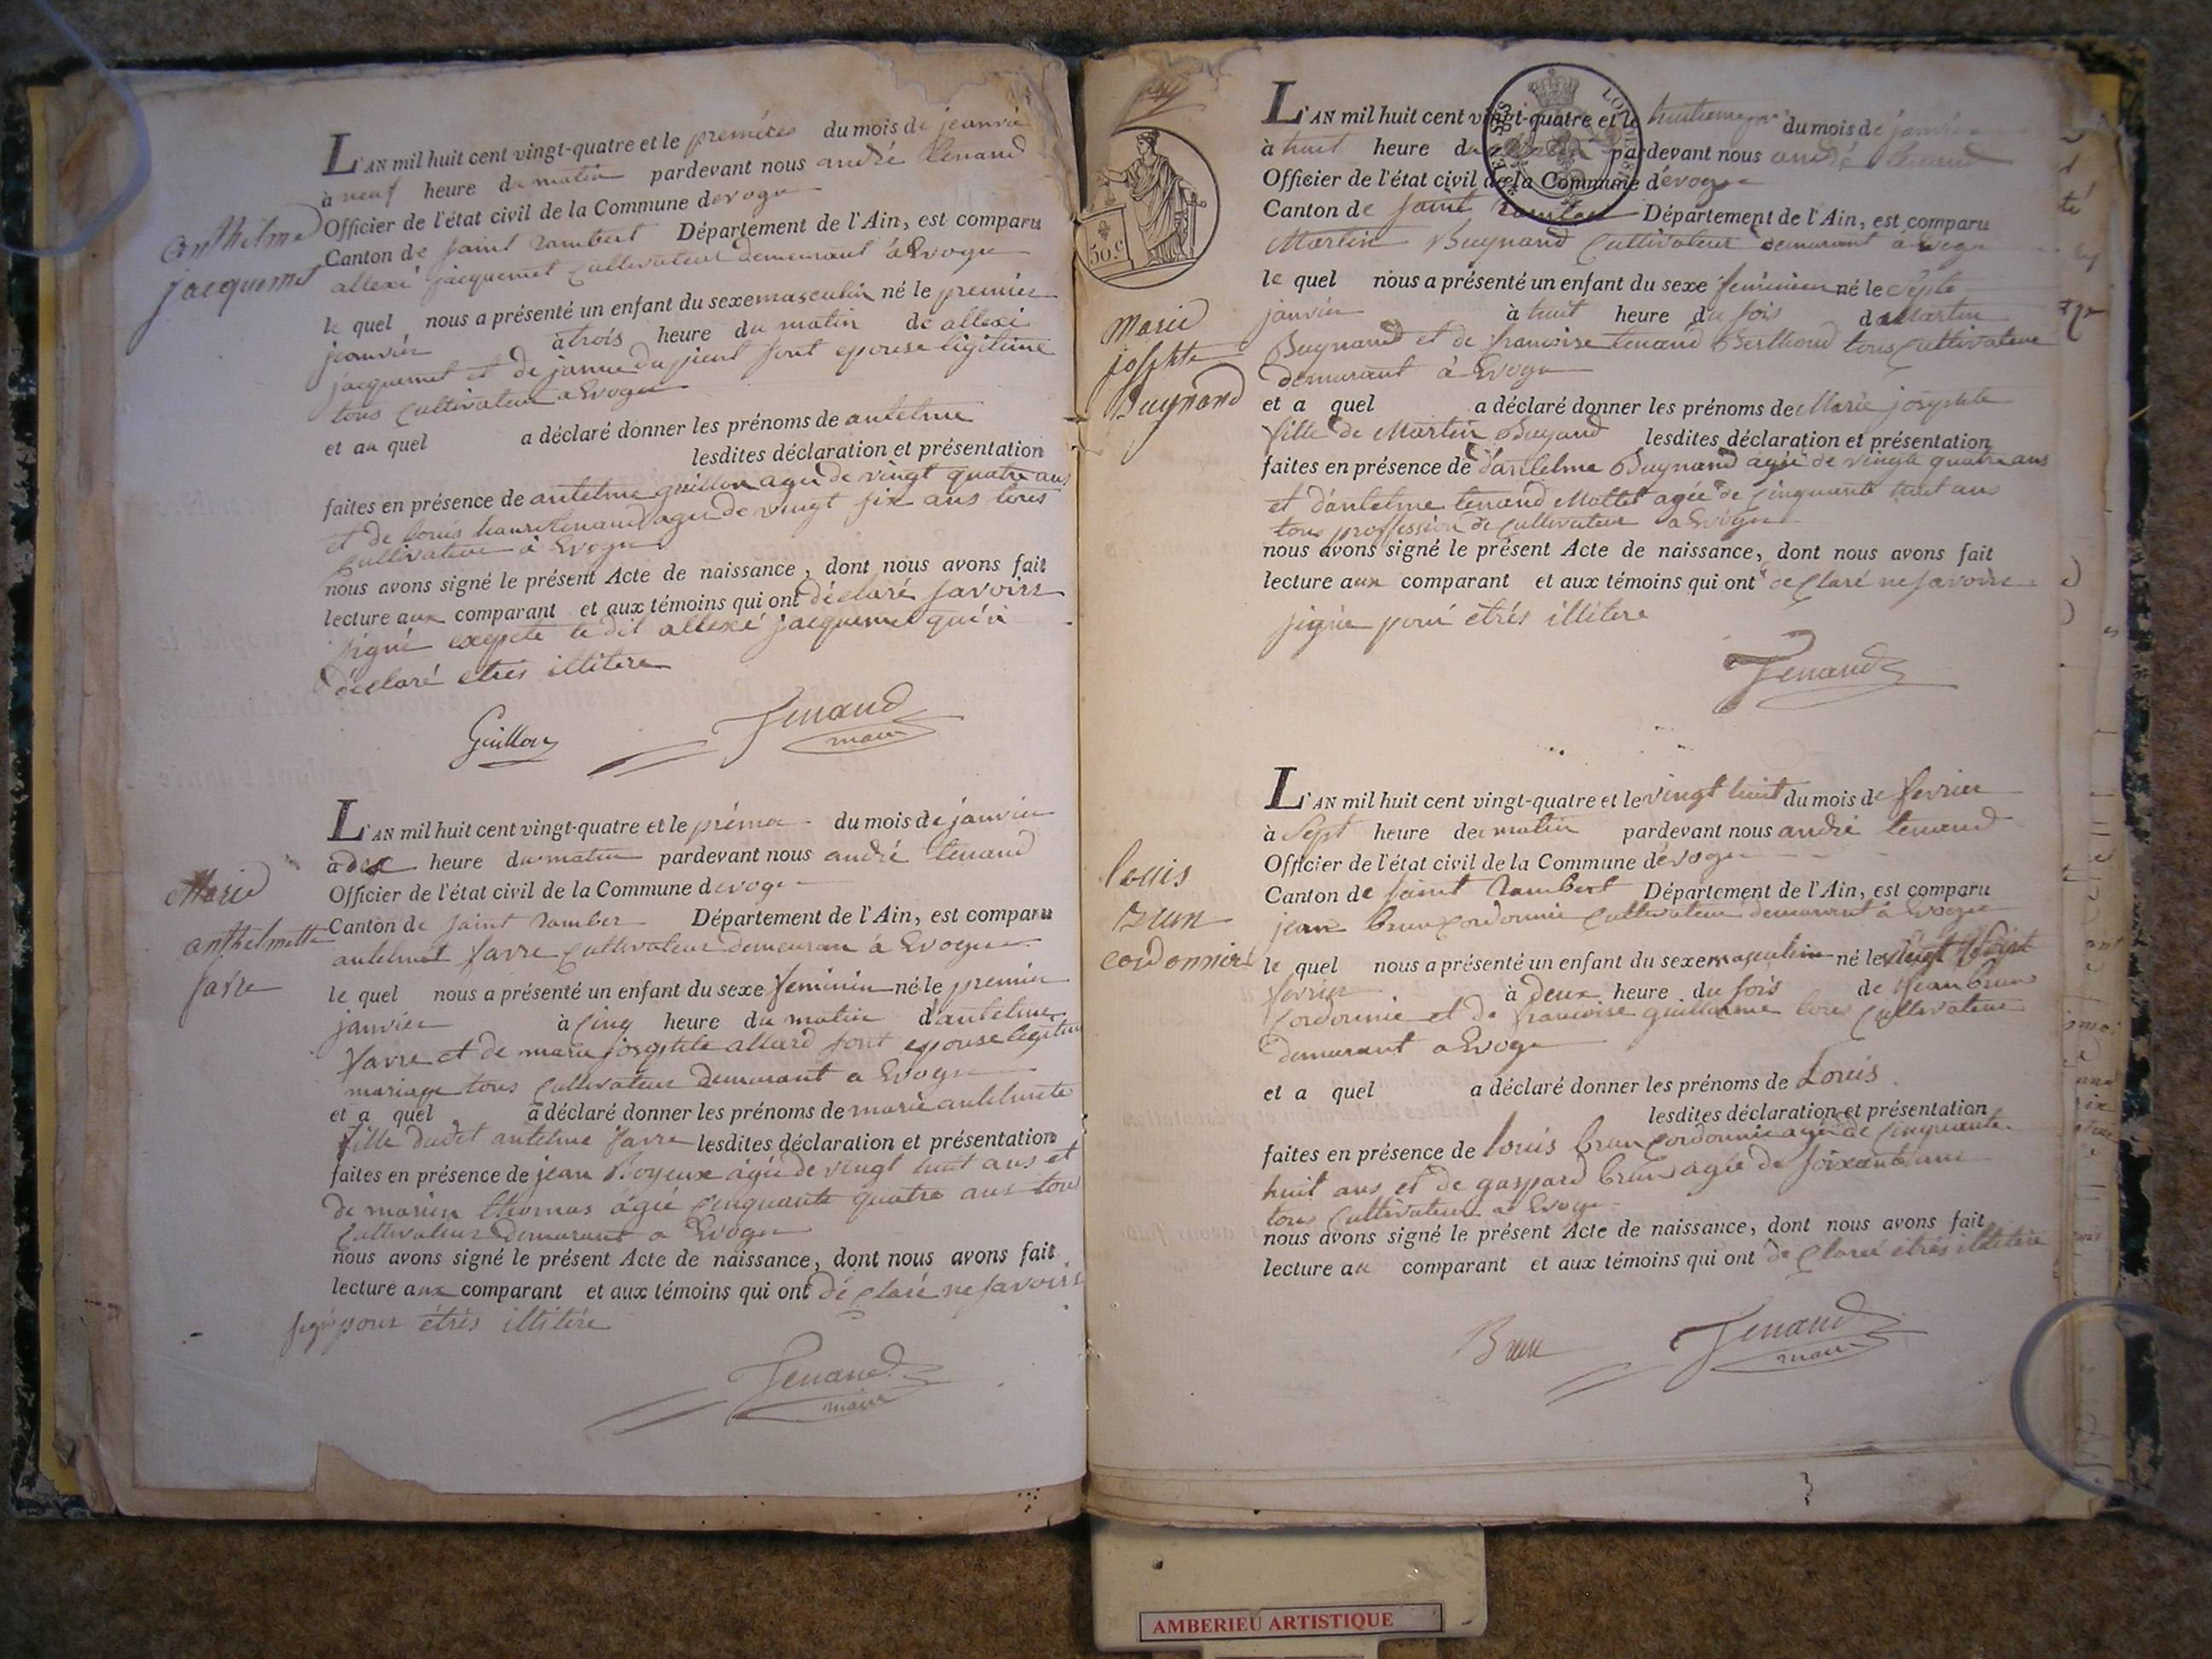 L'AN mil huit cent vingt-quatre et le premier du mois de jeanvié
à neuf heure du matin pardevant nous andré tenand
Officier de l'état civil de la Commune devoge
Canton de saint rambert Département de l'Ain, est comparu
allexi jacquemet cultivateur demeurant à Evoge
le quel nous a présenté un enfant du sexe masculin né le premier
jeanvier à trois heure du matin de allexi
jacquemet et de jeanne sont epouse légitime
tous cultivateur a Evoge
et au quel a déclaré donner les prénoms de antelme
lesdites déclaration et présentation
faites en présence de antelme guillon agé de vingt quatre ans
et de louis tenand agé de vingt six ans tous
cultivateur à Evoge
nous avons signé le présent Acte de naissance, dont nous avons fait
lecture aux comparant et aux témoins qui ont déclaré savoire
signé excepté ledit allexé jacquemet qui à
déclaré etrés illitere
Guillon Tenand
maire
anthelme
jacquemet
L'AN mil huit cent vingt-quatre et le premier du mois de janvier
à dix heure du matin pardevant nous andré tenand
Officier de l'état civil de la Commune devoge
Canton de saint ramber Département de l'Ain, est comparu
antelmet favre cultivateur demeuran à Evoge
le quel nous a présenté un enfant du sexe feminin né le premier
janvier à cinq heure du matin d'antelme
favre et de marie josephte allard sont epouse légitime
mariage tous cultivateur demurant a Evoge
et a quel a déclaré donner les prénoms de marie antelmette
fille dudet antelme favre lesdites déclaration et présentation
faites en présence de jean Royeux âgé de vingt huit ans et
de marin thomas âgé cinquante quatre ans tous
cultivateur demurant a Evoge
nous avons signé le présent Acte de naissance, dont nous avons fait
lecture aux comparant et aux témoins qui ont déclaré ne savoire
signé pour étrés illitére
Tenand
maire
Marie
anthelmette
favre
50.c
L'AN mil huit cent vingt-quatre et le huitieme du mois de janvier
à huit heure du matin pardevant nous andré tenand
Officier de l'état civil de la Commune d'évoge
Canton de saint rambert Département de l'Ain, est comparu
Martin Buynand cultivateur demurant a Evoge
le quel nous a présenté un enfant du sexe feminien né le septe
janvier à huit heure du soir de Martin
Buynand et de francoise tenand Berthond tous cultivateur
demurant à Evoge
et a quel a déclaré donner les prénoms de Marie josephte
fille de Martin Buynand lesdites déclaration et présentation
faites en présence de d'antelme Buynand agée de vingte quatre ans
et d'antelme tenand Mallet agée de cinquante huit ans
tous proffession de cultivateur a Evoge
nous avons signé le présent Acte de naissance, dont nous avons fait
lecture aux comparant et aux témoins qui ont declaré ne savoire
signie pour étrés illitere
Tenand
Marie
josephte
Buynand
L'AN mil huit cent vingt-quatre et le vingt huit du mois de fevrier
à Sept heure de matin pardevant nous andré tenand
Officier de l'état civil de la Commune d'évoge
Canton de saint rambert Département de l'Ain, est comparu
jean brun cordonnie cultivateur demeurent à Evoge
le quel nous a présenté un enfant du sexe masculin né le vingt
fevrier à deux heure du soir de jean brun
Cordonnie et de francoise guillerme tous cultivateur
demurant a Evoge
et a quel a déclaré donner les prénoms de Louis
lesdites déclaration et présentation
faites en présence de louis brun cordonnie agée de cinquante
huit ans et de gaspard brun agée de soixante ans
tous cultivateur a Evoge
nous avons signé le présent Acte de naissance, dont nous avons fait
lecture au comparant et aux témoins qui ont declaré étrés illitere
Brun Tenand
maire
louis
Brun
cordonnier
AMBERIEU ARTISTIQUE